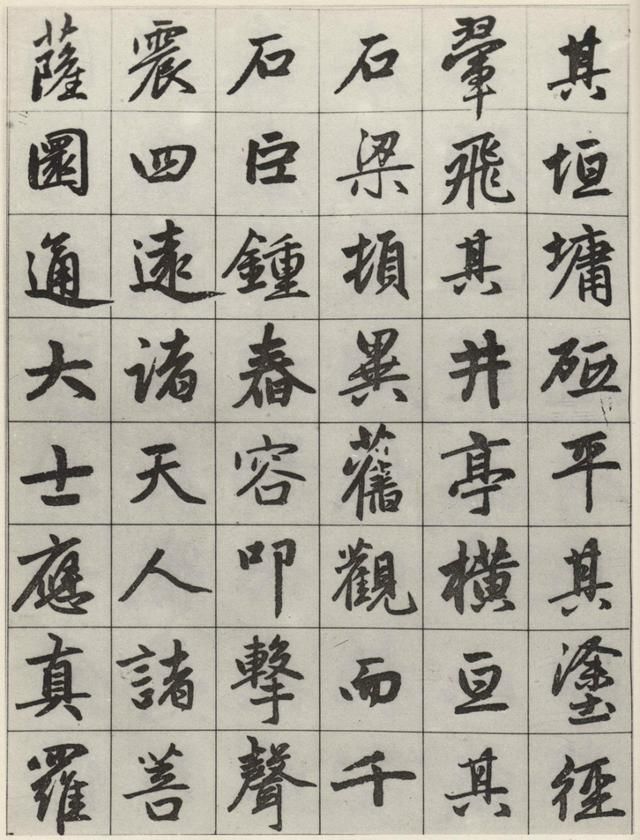 其垣墉砥平其塗徑
翬飛其井亭橫亘其
石梁頓異舊觀而千
石巨鍾舂容叩擊聲
震四遠諸天人諸菩
薩圓通大士應真羅